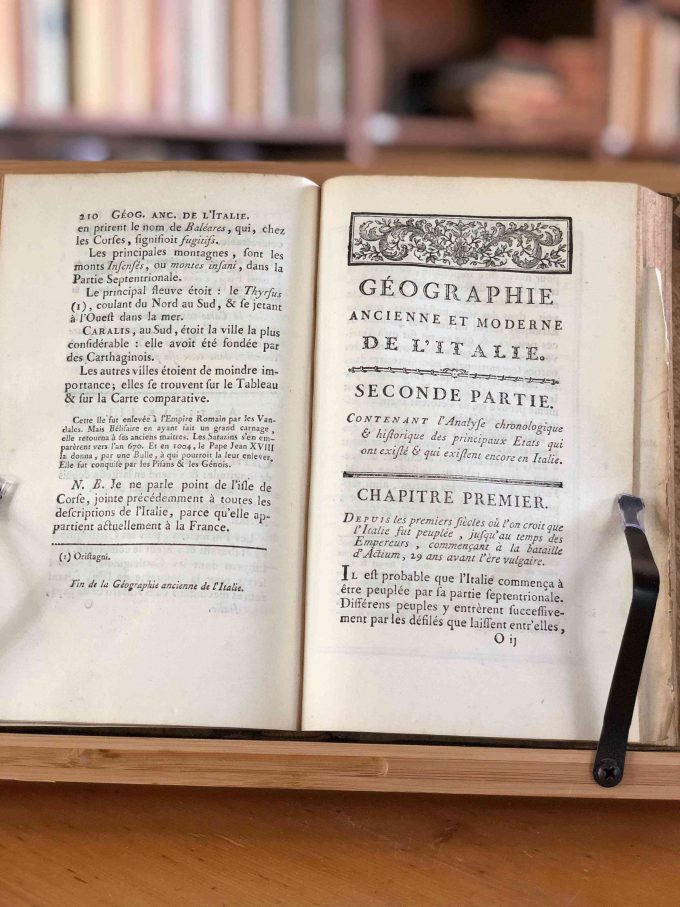 210 GÉOG. ANC. DE L'ITALIE.
en prirent le nom de Baléares, qui, chez
les Corſes, ſignifioit fugitifs.
Les principales montagnes, ſont les
monts Inſenſés, ou montes inſani, dans la
Partie Septentrionale.
Le principal fleuve étoit : le Thyrſus
(1), coulant du Nord au Sud, & ſe jetant
à l'Oueſt dans la mer.
CARALIS, au Sud, étoit la ville la plus
conſidérable : elle avoit été fondée par
des Carthaginois.
Les autres villes étoient de moindre im-
portance; elles ſe trouvent ſur le Tableau
& ſur la Carte comparative.
Cette iſle fut enlevée à l'Empire Romain par les Van-
dales. Mais Béliſaire en ayant fait un grand carnage,
elle retourna à ſes anciens maîtres. Les Sarazins s'en em-
parèrent vers l'an 670. Et en 1004, le Pape Jean XVIII
la donna, par une Bulle, à qui pourroit la leur enlever.
Elle fut conquiſe par les Piſans & les Génois.
N. B. Je ne parle point de l'iſle de
Corſe, jointe précédemment à toutes les
deſcriptions de l'Italie, parce qu'elle ap-
partient actuellement à la France.
(1) Oriſtagni.
Fin de la Géographie ancienne de l'Italie.
GÉOGRAPHIE
ANCIENNE ET MODERNE
DE L'ITALIE.
SECONDE PARTIE.
CONTENANT l'Analyſe chronologique
& hiſtorique des principaux Etats qui
ont exiſté & qui exiſtent encore en Italie.
CHAPITRE PREMIER.
DEPUIS les premiers ſiècles où l'on croit que
l'Italie fut peuplée, juſqu'au temps des
Empereurs, commençant à la bataille
d'Actium, 29 ans avant l'ère vulgaire.
IL eſt probable que l'Italie commença à
être peuplée par ſa partie ſeptentrionale.
Différens peuples y entrèrent ſucceſſive-
ment par les défilés que laiſſent entr'elles,
O ij